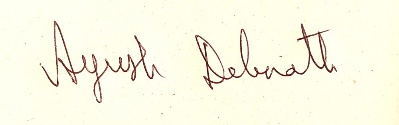 Ayush Debnath